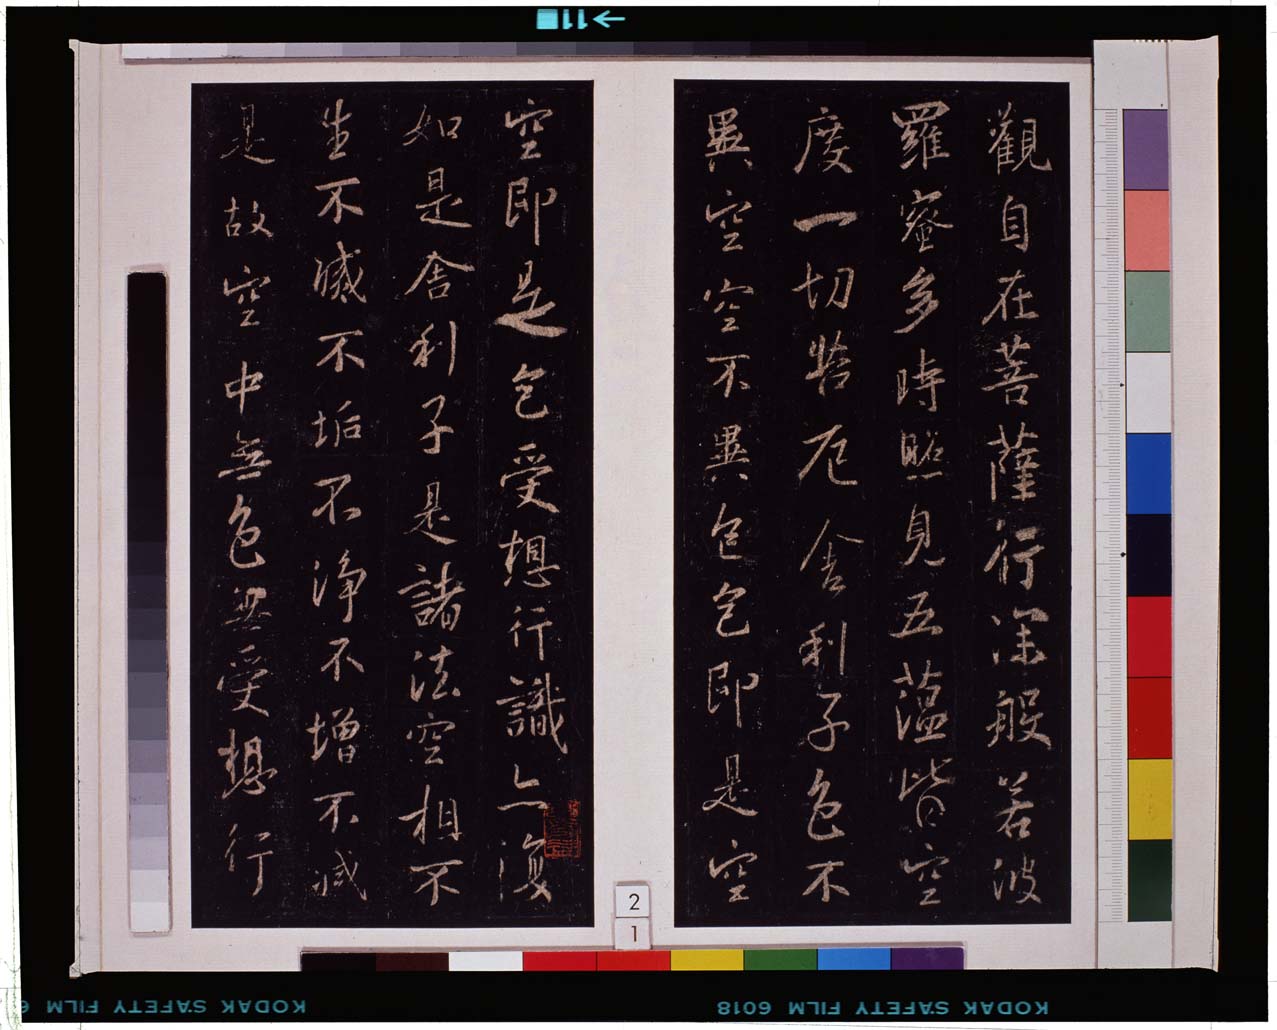 觀自在菩薩行深般若波
羅蜜多時照見五蘊皆空
度一切苦厄舍利子色不
異空空不異色色即是空
空即是色受想行識亦復
如是舍利子是諸法空相不
生不滅不垢不淨不增不減
是故空中無色無受想行
2
1
11
KODAK SAFETY FILM 6018
KODAK SAFETY FILM 6